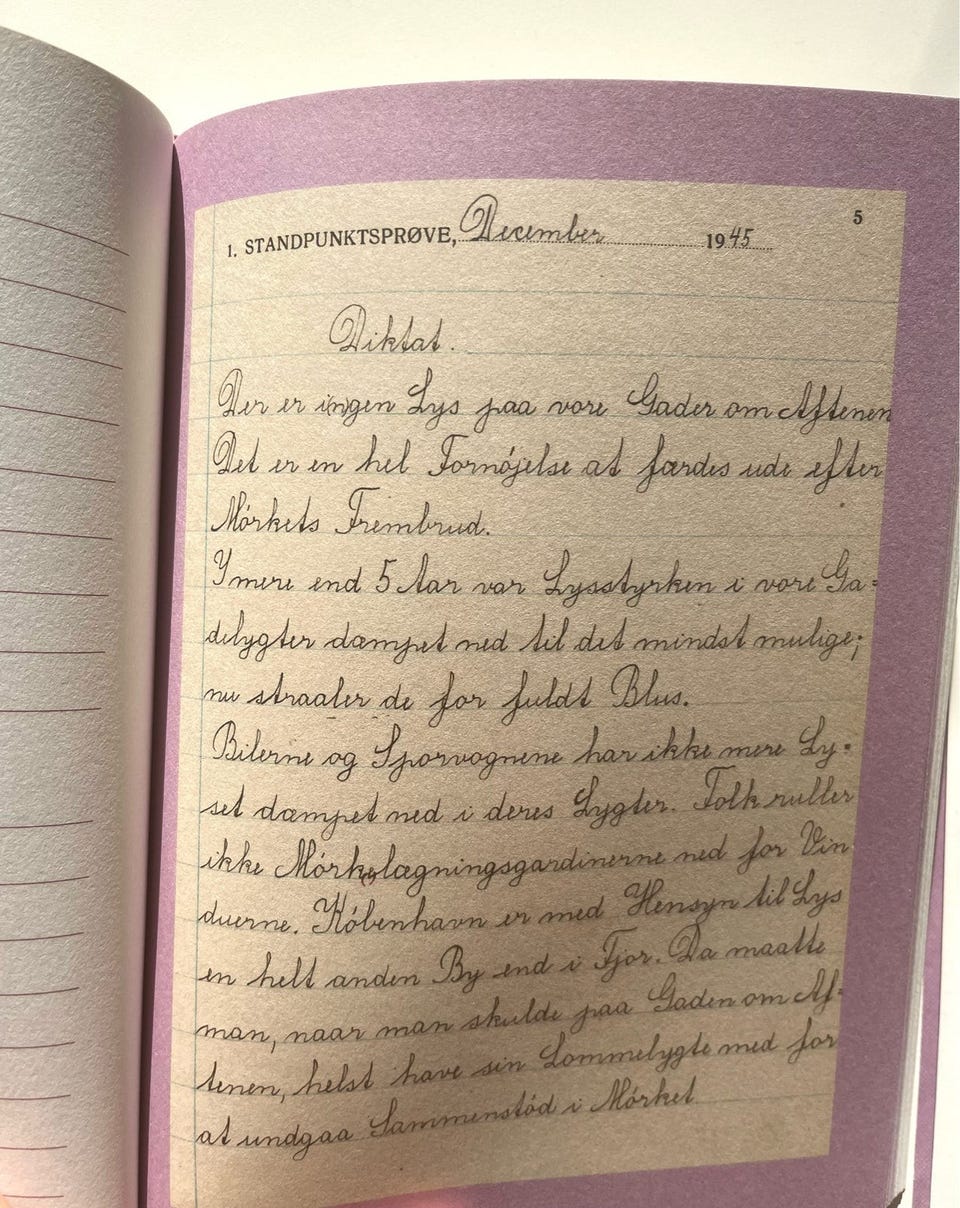 5
1. STANDPUNKTSPRØVE, December 1945
Diktat.
Der er ingen Lys paa vore Gader om Aftenen
Det er en hel Fornøjelse at færdes ude efter
Mørkets Frembrud.
I mere end 5 Aar var Lysstyrken i vore Ga=
delygter dæmpet ned til det mindst mulige;
nu straaler de for fuldt Blus.
Bilerne og Sporvognene har ikke mere Ly=
set dæmpet ned i deres Lygter. Folk ruller
ikke Mørkelægningsgardinerne ned for Vin
duerne. København er med Hensyn til Lys
en helt anden By end i Fjor. Da maatte
man, naar man skulde paa Gaden om Af=
tenen, helst have sin Lommelygte med for
at undgaa Sammenstød i Mørket